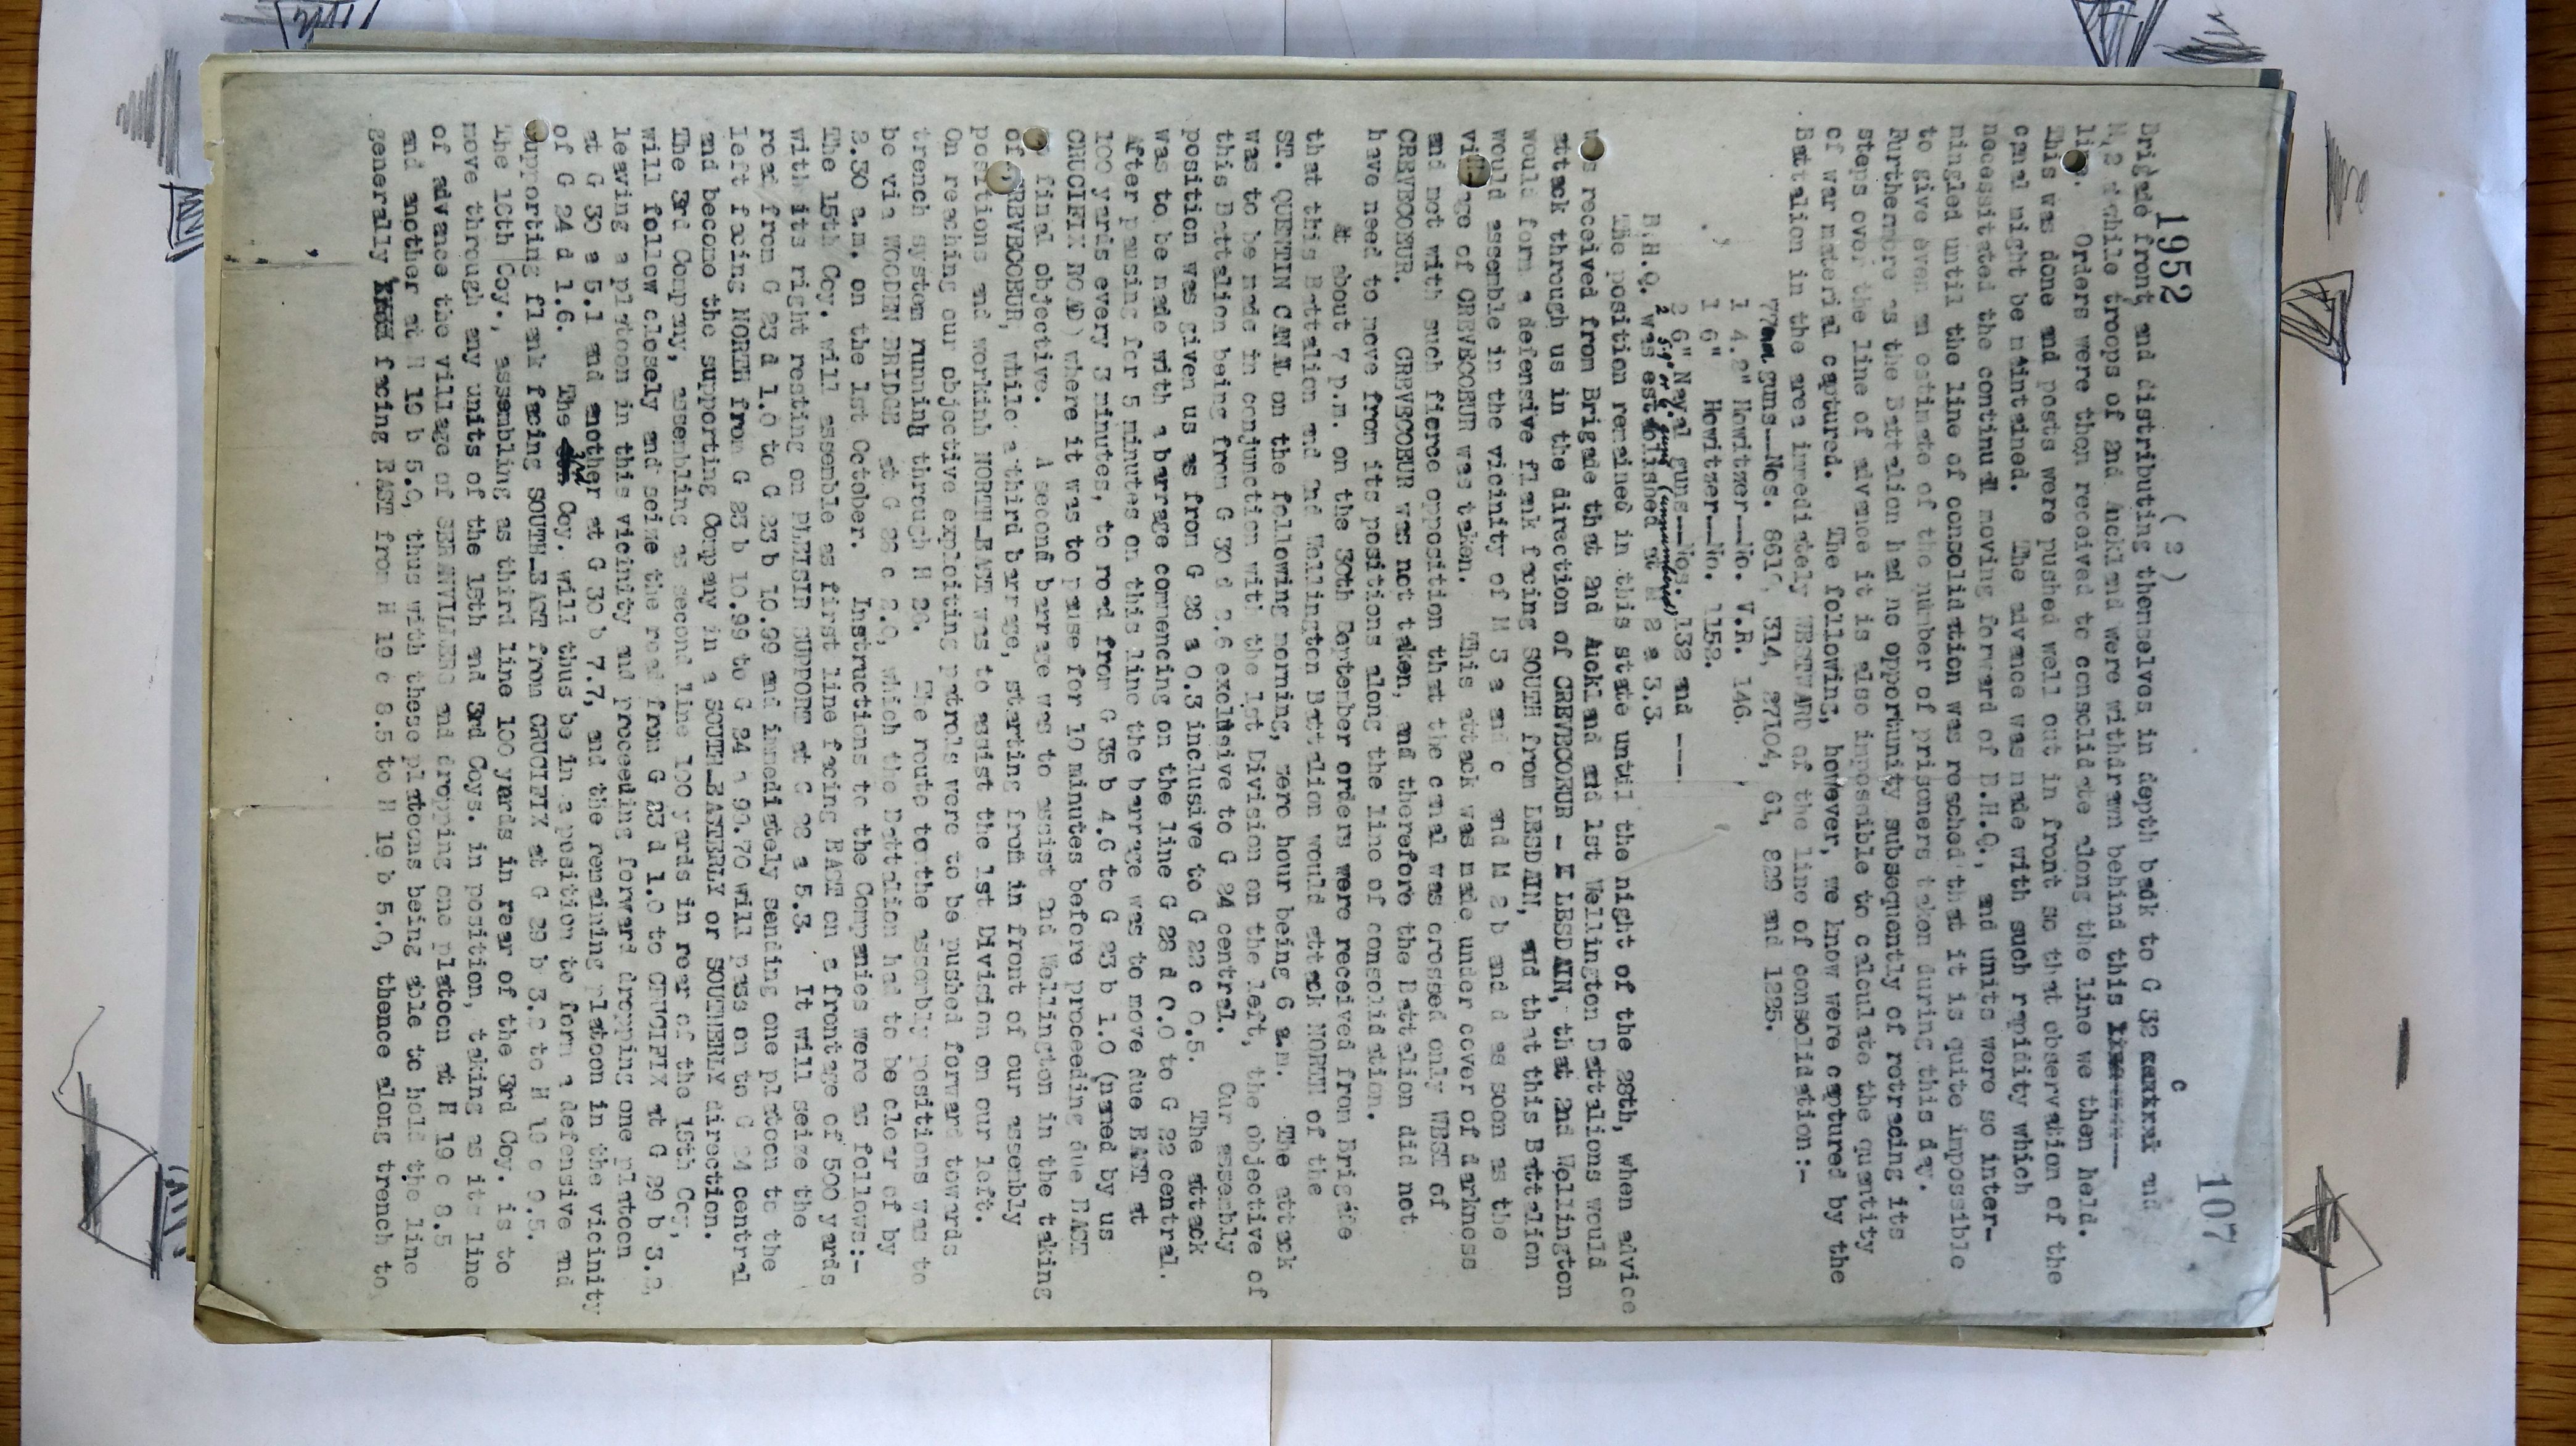 1952
107
( 3 )
c
Brigade front, and distributing themselves in depth badk to G 32 and
M,2 a while troops of 2nd Auckland were withdrawn behind this
line. Orders were then received to consolidate along the line we then held.
This was done and posts were pushed well out in front so that observation of the
canal might be maintained. The advance was made with such rapidity which
necessitated the continual moving forward of B.H.Q., and units were so inter-
mingled until the line of consolidation was reached that it is quite impossible
to give even an estimate of the number of prisoners taken during this day.
Furthermore as the Battalion had no opportunity subsequently of retracing its
steps over the line of advance it is also impossible to calculate the quantity
of war material captured. The following, however, we know were captured by the
Battalion in the area immediately WESTWARD of the line of consolidation:-
77mm guns---Nos. 314, 27104, 61, 829 and 1225.
1 4.2" Howitzer---No. V.R. 146.
1 6" Howitzer---No. 1152.
2 6" Naval guns---Nos. 132 and ---.
2 5.9" or 6" guns (unnumbered)
B.H.Q. was established at M 2 a 3.3.
The position remained in this state until the night of the 28th, when advice
was received from Brigade that 2nd Auckland and 1st Wellington Battalions would
attack through us in the direction of CREVECOEUR - LESDAIN, that 2nd Wellington
would form a defensive flank facing SOUTH from LESDAIN, and that this Battalion
would assemble in the vicinity of M 3 a and c and M 2 b and d as soon as the
village of CREVECOEUR was taken. This attack was made under cover of darkness
and met with such fierce opposition that the canal was crossed only WEST of
CREVECOEUR. CREVECOEUR was not taken, and therefore the Battalion did not
have need to move from its positions along the line of consolidation.
At about 7 p.m. on the 30th September orders were received from Brigade
that this Battalion and 2nd Wellington Battalion would attack NORTH of the
ST. QUENTIN CANAL on the following morning, zero hour being 6 a.m. The attack
was to be made in conjunction with the 1st Division on the left, the objective of
this Battalion being from G 30 d 2.6 exclusive to G 24 central. Our assembly
position was given us as from G 28 a 0.3 inclusive to G 22 c 0.5. The attack
was to be made with a barrage commencing on the line G 28 d 0.0 to G 22 central.
After pausing for 5 minutes on this line the barrage was to move due EAST at
100 yards every 3 minutes, to road from G 35 b 4.6 to G 23 b 1.0 (named by us
CRUCIFIX ROAD) where it was to pause for 10 minutes before proceeding due EAST
to final objective. A second barrage was to assist 2nd Wellington in the taking
of CREVECOEUR, while a third barrage, starting from in front of our assembly
positions and workinh NORTH-EAST was to assist the 1st Division on our left.
On reaching our objective exploiting patrols were to be pushed forward towards
trench system running through H 26. The route to the assembly positions was to
be via WOODEN BRIDGE at G 26 c 2.0, which the Battalion had to be clear of by
2.30 a.m. on the 1st October. Instructions to the Companies were as follows:-
The 15th Coy. will assemble as first line facing EAST on a frontage of 500 yards
with its right resting on PLEISIR SUPPORT at G 28 a 5.3. It will seize the
road from G 23 d 1.0 to G 23 b 10.99 and immediately sending one platoon to the
left facing NORTH from G 23 b 10.99 to G 24 a 99.70 will pass on to G 24 central
and become the supporting Company in a SOUTH-EASTERLY or SOUTHERLY direction.
The 3rd Company, assembling as second line 100 yards in rear of the 15th Coy,
will follow closely and seize the road from G 23 d 1.0 to CRUCIFIX at G 29 b 3.2,
leaving a platoon in this vicinity and proceeding forward dropping one platoon
at G 30 a 5.1 and another at G 30 b 7.7, and the remaining platoon in the vicinity
of G 24 d 1.6. The 3rd Coy. will thus be in a position to form a defensive and
supporting flank facing SOUTH-EAST from CRUCIFIX at G 29 b 3.2 to H 19 c 9.5.
The 16th Coy., assembling as third line 100 yards in rear of the 3rd Coy. is to
move through any units of the 15th and 3rd Coys. in position, taking as its line
of advance the village of SERANVILLERS and dropping one platoon at H 19 c 8.5
and another at H 19 b 5.0, thus with these platoons being able to hold the line
generally facing EAST from H 19 c 8.5 to H 19 b 5.0, thence along trench to